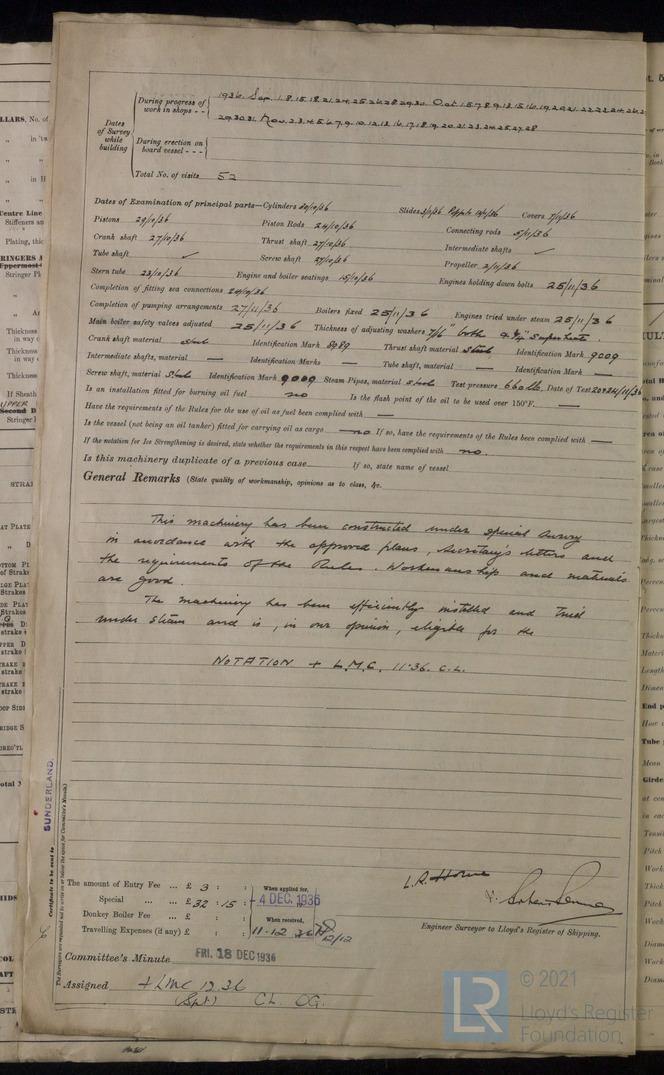 During progress of work in shops - - 1936. Sep. 1. 8. 15. 18. 21. 24. 25. 26. 28. 29. 30. Oct. 1. 5. 7. 8. 9. 13. 15. 16. 19. 20. 21. 22. 23. 24. 26.
29. 30. 31. Nov. 2. 3. 4. 5. 6. 7. 9. 10. 12. 13. 16. 17. 18. 19. 20. 21. 23. 24. 25. 27. 28
Dates of Survey while building
During erection on board vessel - - -
Total No. of visits 52
Dates of Examination of principal parts—Cylinders 20/10/36 Slides Covers 7/11/36
Pistons 29/10/36 Piston Rods 24/10/36 Connecting rods 5/11/36
Crank shaft 27/10/36 Thrust shaft 27/10/36 Intermediate shafts ✓
Tube shaft ✓ Screw shaft 27/10/36 Propeller 2/11/36
Stern tube 23/10/36 Engine and boiler seatings 15/10/36 Engines holding down bolts 25/11/36
Completion of fitting sea connections 24/10/36
Completion of pumping arrangements 27/11/36 Boilers fixed 25/11/36 Engines tried under steam 25/11/36
Main boiler safety valves adjusted 25/11/36 Thickness of adjusting washers
Crank shaft material Steel Identification Mark 8989 Thrust shaft material Steel Identification Mark 9009
Intermediate shafts, material — Identification Marks — Tube shaft, material — Identification Mark —
Screw shaft, material Steel Identification Mark 9009 Steam Pipes, material Steel Test pressure 660 lb. Date of Test 20 & 24/11/36
Is an installation fitted for burning oil fuel no Is the flash point of the oil to be used over 150°F. —
Have the requirements of the Rules for the use of oil as fuel been complied with —
Is the vessel (not being an oil tanker) fitted for carrying oil as cargo no If so, have the requirements of the Rules been complied with —
If the notation for Ice Strengthening is desired, state whether the requirements in this respect have been complied with no.
Is this machinery duplicate of a previous case If so, state name of vessel
General Remarks (State quality of workmanship, opinions as to class, &c.
This machinery has been constructed under special survey
in accordance with the approved plans, Secretary's letters and
the requirements of the Rules. Workmanship and materials
are good
The machinery has been efficiently installed and tried
under steam and is, in our opinion, eligible for the
NOTATION + L.M.C. 11.36. C.L.
SUNDERLAND.
Certificate to be sent to
(The Surveyors are requested not to write on or below the space for Committee's Minute.)
The amount of Entry Fee ... £ 3 : :
Special ... ... £ 32 : 15 :
Donkey Boiler Fee ... £ : :
Travelling Expenses (if any) £ : :
When applied for,
- 4 DEC. 1936
When received,
11.12.36
12/12
L.R. Horne
Engineer Surveyor to Lloyd's Register of Shipping.
Committee's Minute FRI. 18 DEC 1936
Assigned + LMC 12.36
(Spt) CL. OG.
© 2021
LR
Lloyd's Register
Foundation